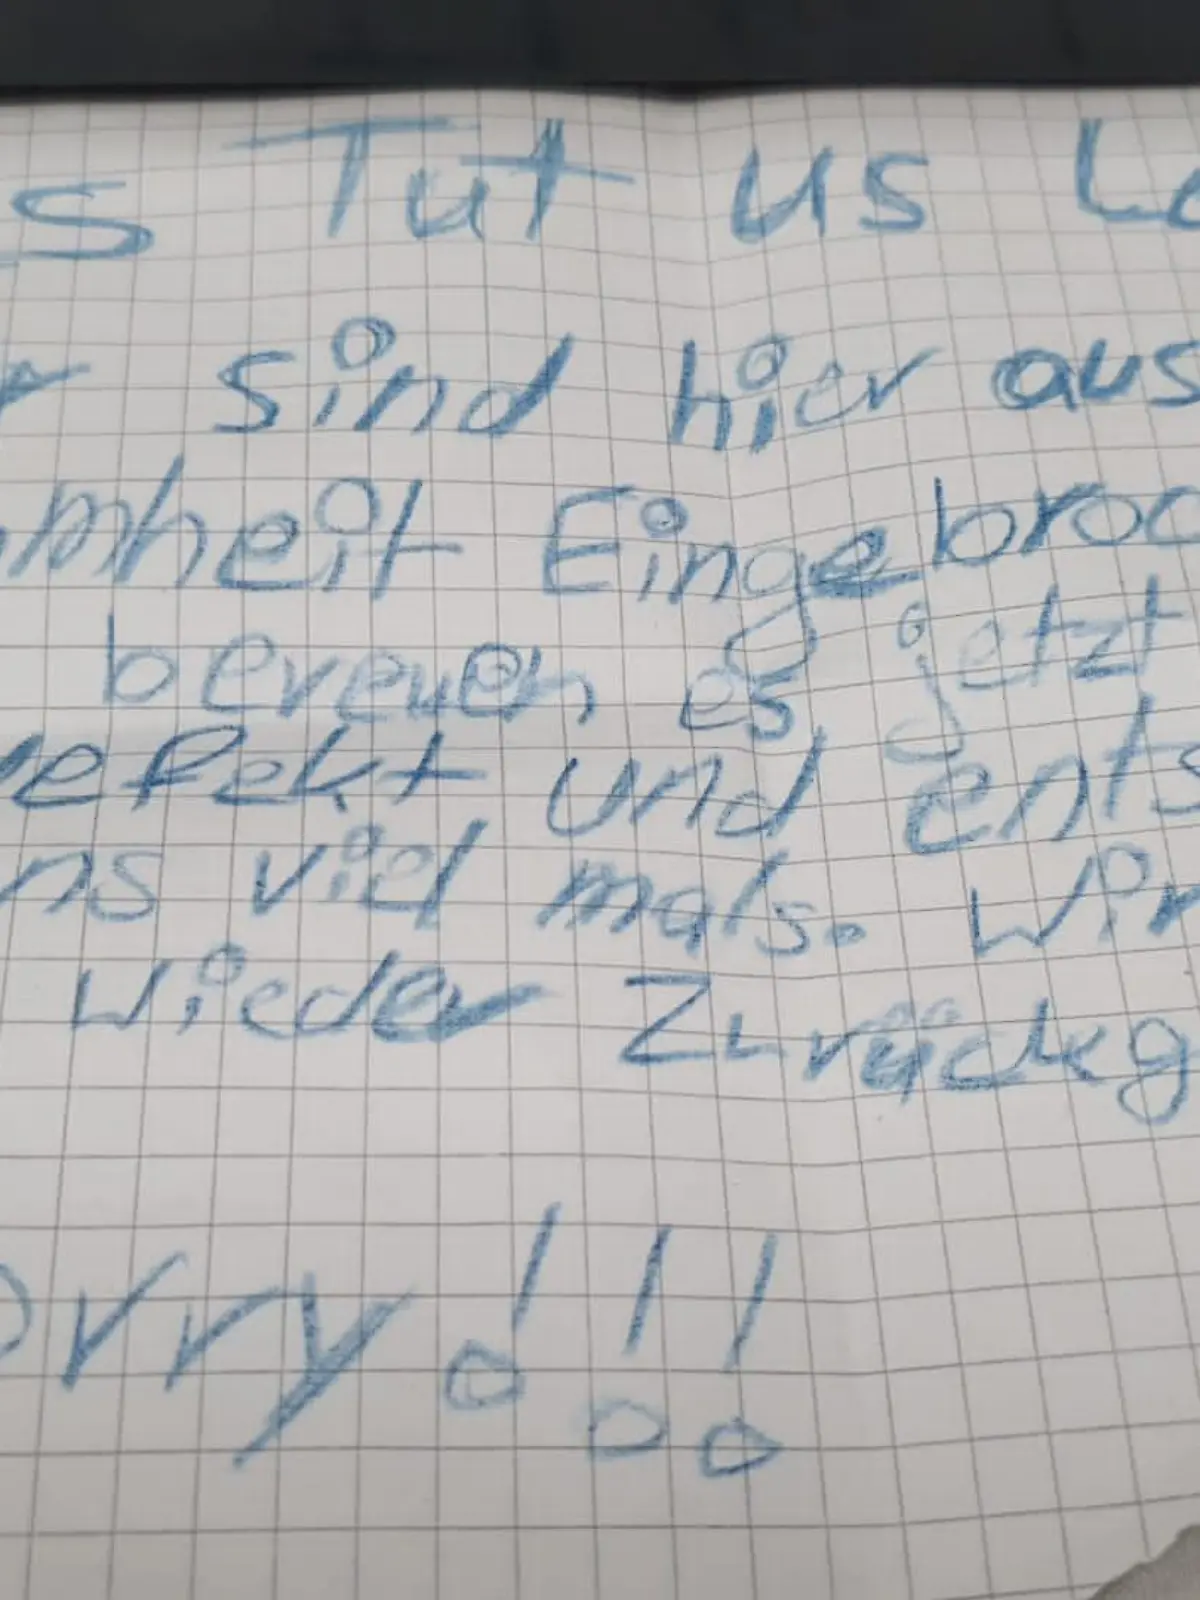 s Tut us L
r sind hier aus
mheit Eingebroc
bereuen es jetzt
efekt und ents
ns viel mals. Wir
wieder Zurückg
orry!!!